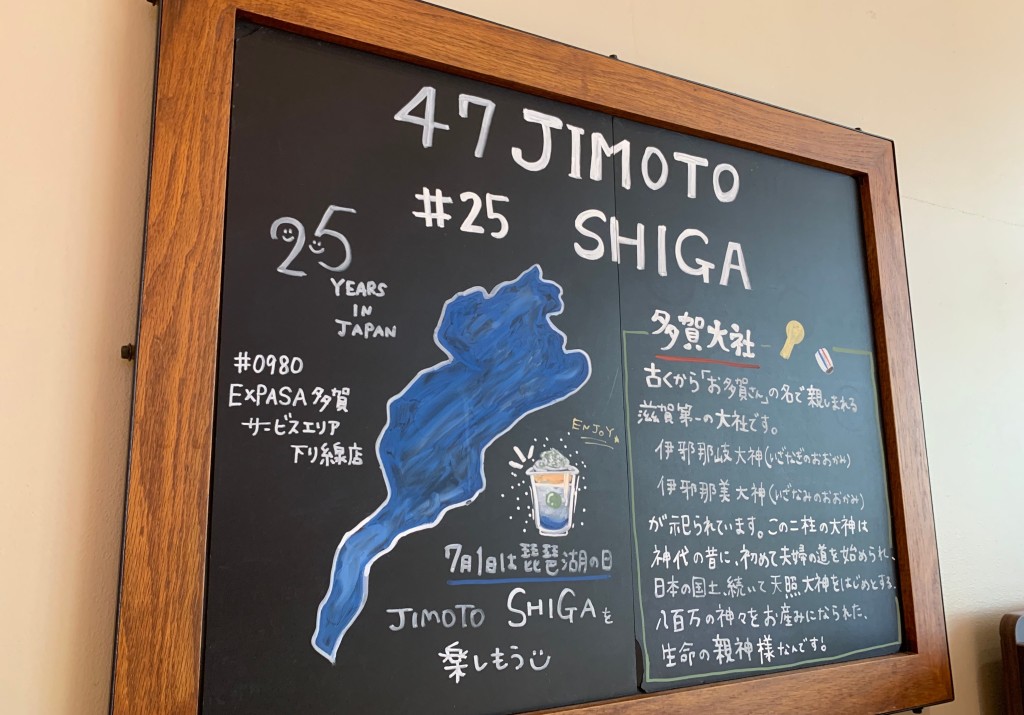 47 JIMOTO
#25 SHIGA
25
YEARS
IN
JAPAN
#0980
EXPASA多賀
サービスエリア
下り線店
ENJOY
7月1日は琵琶湖の日
JIMOTO SHIGAを
楽しもう
多賀大社
古くから「お多賀さん」の名で親しまれる
滋賀第一の大社です。
伊邪那岐大神(いざなぎのおおかみ)
伊邪那美大神(いざなみのおおかみ)
が祀られています。この二柱の大神は
神代の昔に、初めて夫婦の道を始められ、
日本の国土、続いて天照大神をはじめとする、
八百万の神々をお産みになられた、
生命の親神様なんです!